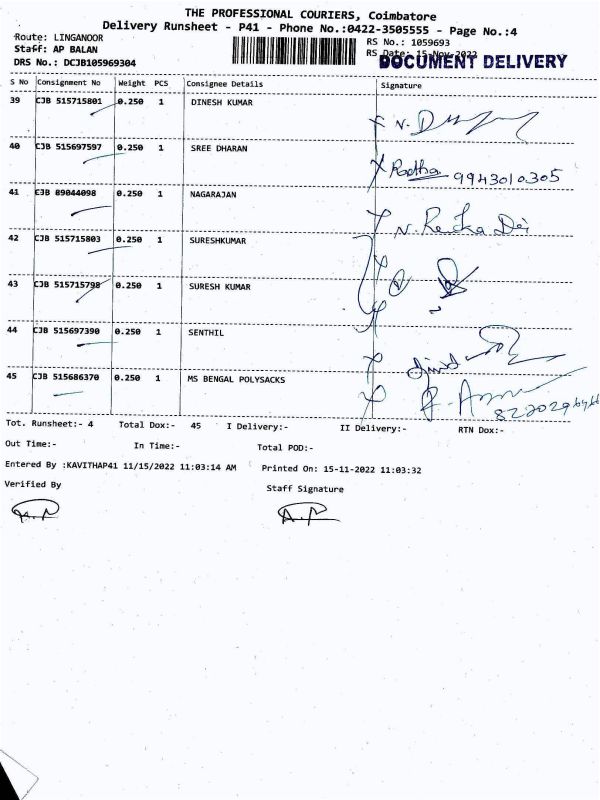 THE PROFESSIONAL COURIERS, Coimbatore
Delivery Runsheet - P41 - Phone No.:0422-3505555 - Page No.:4
Route: LINGANOOR
RS No.: 1059693
Staff: AP BALAN
RS Date: 15-Nov-2022
DOCUMENT DELIVERY
DRS No.: DCJB105969304
S No Consignment No Weight PCS Consignee Details Signature
39 CJB 515715801 0.250 1 DINESH KUMAR
40 CJB 515697597 0.250 1 SREE DHARAN
Radha 9943010305
41 CJB 89044098 0.250 1 NAGARAJAN
N. Rekha Devi
42 CJB 515715803 0.250 1 SURESHKUMAR
43 CJB 515715798 0.250 1 SURESH KUMAR
44 CJB 515697390 0.250 1 SENTHIL
45 CJB 515686370 0.250 1 MS BENGAL POLYSACKS
Tot. Runsheet:- 4 Total Dox:- 45 I Delivery:- II Delivery:- RTN Dox:-
Out Time:- In Time:- Total POD:-
Entered By :KAVITHAP41 11/15/2022 11:03:14 AM Printed On: 15-11-2022 11:03:32
Verified By Staff Signature